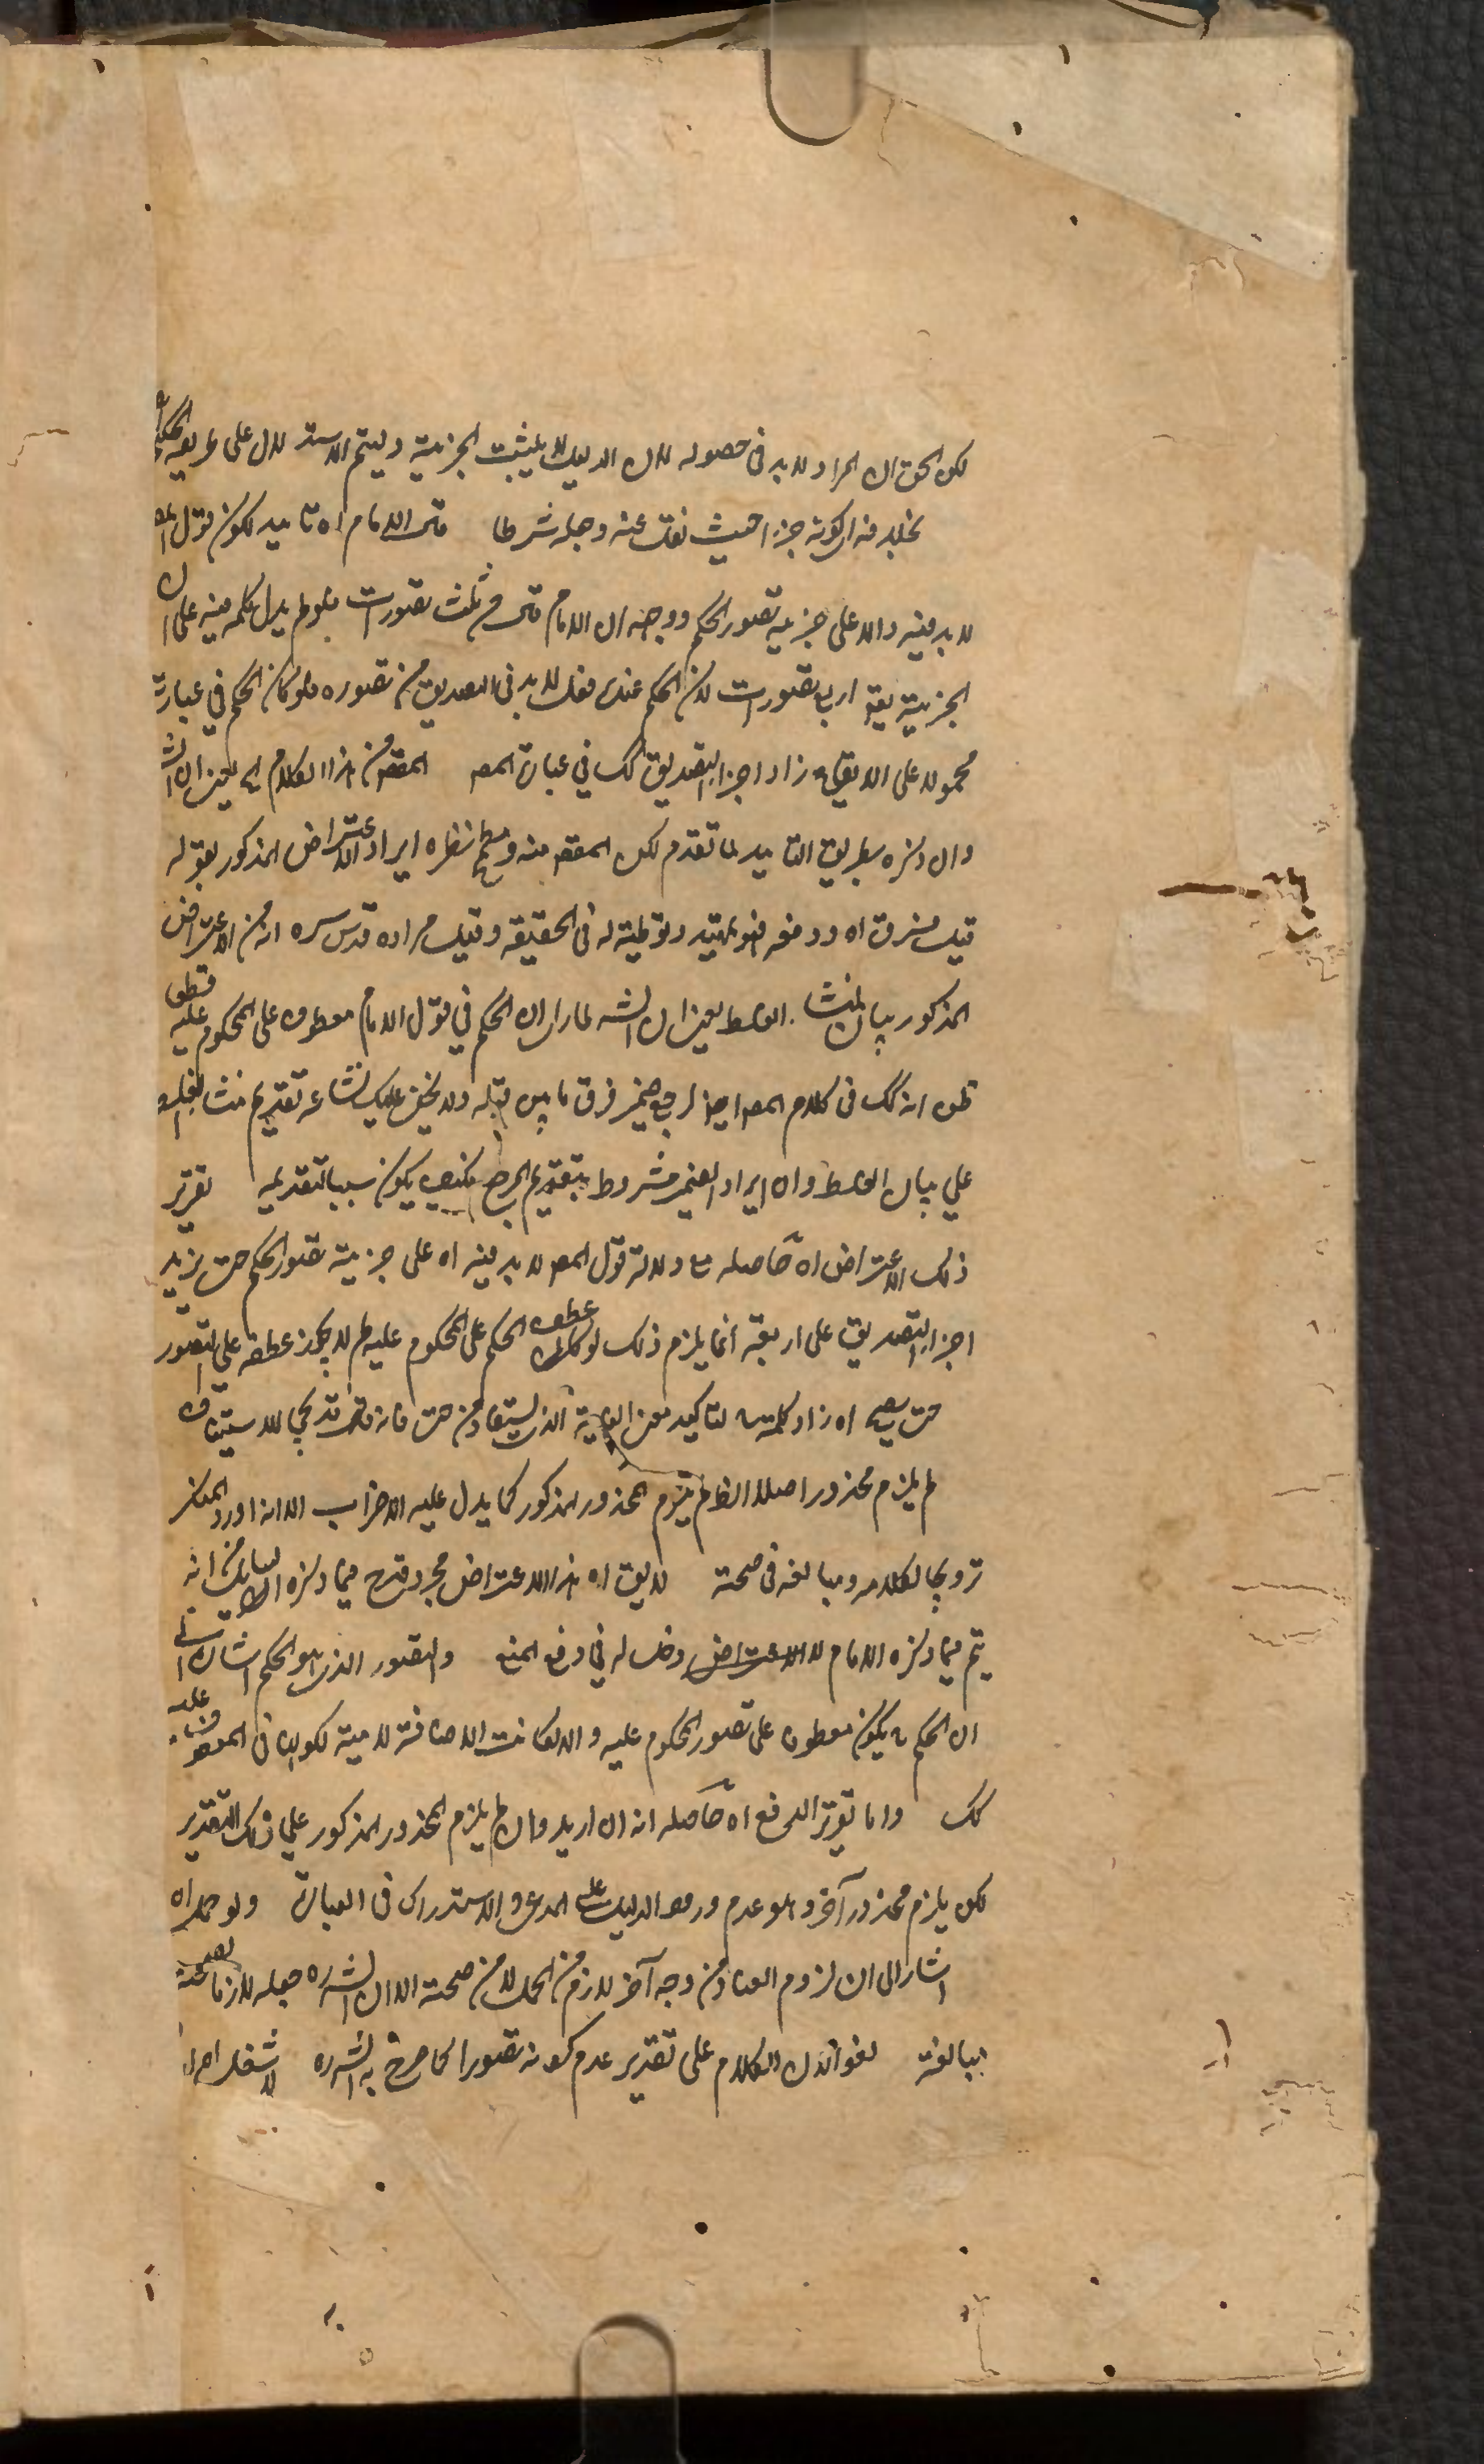 لكن الحق ان المراد لا بد في حصوله لان الدليل لا يثبت الجزئية وليتم الاستدلال على طريقة الحكم
بخلاف كونه جزءا حيث نقل عنه وجعله شرطا قال الامام اه تاييد لكون قول المص
لا بد فيه دالا على جزئية تصور الحكم ووجهه ان الامام قال في ثلث تصورات فلو لم يدل كلمة فيه على ان
الجزئية يق اربع تصورات لان الحكم عنده فعل لا بد في التصديق من تصوره فلو كان الحكم في عبارته
محمولا على الايقاع زاد اجزاء التصديق كك في عبارة المص المقص من هذا الكلام اه يعني ان الش
وان ذكره بطريق التاييد لما تقدم لكن المقص منه ومطمح نظره ايراد الاعتراض المذكور بقوله
قيل فرق اه ودفعه فهو تمهيد وتوطئة له في الحقيقة وقيل مراده قدس سره انه من الاعتراض
المذكور بيان لمنشا الغلط يعني ان الش لما راى ان الحكم في قول الامام معطوف على المحكوم عليه قطعا
ظن انه كك في كلام المص ايضا فرق ما بين قبله ولا يخفى عليك شناعة تقديم منشا الغلط
على بيان الغلط وان ايراد الضمير مشروط بتقديم المرجع فكيف يكون سببا لتقديمه تقرير
ذلك الاعتراض اه حاصله منع دلالة قول المص لا بد فيه اه على جزئية تصور الحكم حتى يزيد
اجزاء التصديق على اربعة انما يلزم ذلك لو كان عطف الحكم على المحكوم عليه ولم لا يجوز عطفه على التصور
حتى يصح اه زاد كلمة لتاكيد معنى الغاية الذي يستفاد من حتى فانه قد يجئ للاستيناف
لم يلزم محذور اصلا الظ لم يلزم المحذور المذكور كما يدل عليه الاضراب الا انه اورد المنكر
ترويجا لكلامه ومبالغة في صحته لا يق اه هذا الاعتراض مجرد قدح فيما ذكره السائل من انه
يتم فيما ذكره الامام لا الاعتراض دخل له في دفع المنع والتصور الذي هو الحكم اشارة الى
ان الحكم يكون معطوفا على تصور المحكوم عليه والا لكانت الاضافة لامية لكونها في المعطوف عليه
كك واما تقرير الدفع اه حاصله انه ان اريد وان لم يلزم المحذور المذكور على ذلك التقدير
لكن يلزم محذور آخر وهو عدم ورود الدليل على المدعى والاستدراك في العبارة ولو حمل اه
اشار الى ان لزوم الفساد من وجه آخر لازم من الحمل لا من صحته الا ان الش ره جعله لازما لصحته
مبالغة لغو اذ الكلام على تقدير عدم كونه تصورا كما صرح به الش ره لا شغل